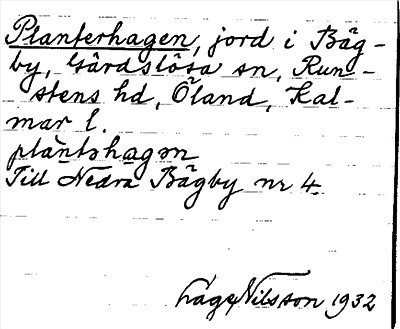 Planterhagen, jord i Bäg-
by, Gårdslösa sn, Run-
stens hd, Öland, Kal-
mar l.
plàntəhagən
Till Nedra Bägby nr 4.
Åge Nilsson 1932